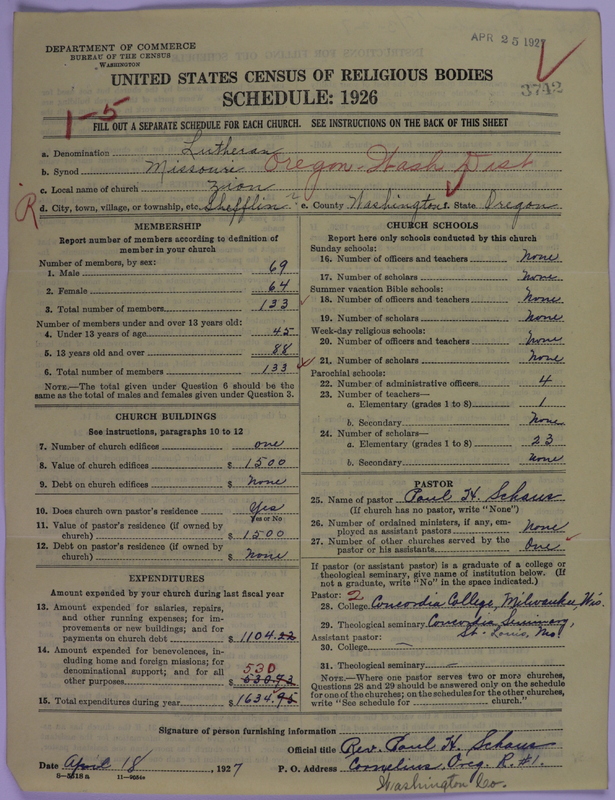 DEPARTMENT OF COMMERCE
BUREAU OF THE CENSUS
WASHINGTON
APR 25 1927
3742
UNITED STATES CENSUS OF RELIGIOUS BODIES
SCHEDULE: 1926
1-5
FILL OUT A SEPARATE SCHEDULE FOR EACH CHURCH. SEE INSTRUCTIONS ON THE BACK OF THIS SHEET
a. Denomination Lutheran
b. Synod Missouri Oregon-Wash Dist
c. Local name of church Zion
R
d. City, town, village, or township, etc. Shefflin ? e. County Washington f. State Oregon
MEMBERSHIP
Report number of members according to definition of member in your church
Number of members, by sex:
1. Male 69
2. Female 64
3. Total number of members 133
Number of members under and over 13 years old:
4. Under 13 years of age 45
5. 13 years old and over 88
6. Total number of members 133
NOTE.—The total given under Question 6 should be
same as the total of males and females given under Question 3.
CHURCH BUILDINGS
See instructions, paragraphs 10 to 12
7. Number of church edifices one
8. Value of church edifices $ 1500
9. Debt on church edifices $ None
10. Does church own pastor's residence Yes
Yes or No
11. Value of pastor's residence (if owned by
church) $ 1500
12. Debt on pastor's residence (if owned by
church) $ None
EXPENDITURES
Amount expended by your church during last fiscal year
13. Amount expended for salaries, repairs,
and other running expenses; for im-
provements or new buildings; and for
payments on church debt $ 1104.22
14. Amount expended for benevolences, in-
cluding home and foreign missions; for
denominational support; and for all
530
other purposes $ 530.73
15. Total expenditures during year $ 1634.95
CHURCH SCHOOLS
Report here only schools conducted by this church
Sunday schools:
16. Number of officers and teachers None
17. Number of scholars None
Summer vacation Bible schools:
18. Number of officers and teachers None
19. Number of scholars None
Week-day religious schools:
20. Number of officers and teachers None
21. Number of scholars None
Parochial schools:
22. Number of administrative officers 4
23. Number of teachers—
a. Elementary (grades 1 to 8) 1
b. Secondary None
24. Number of scholars—
a. Elementary (grades 1 to 8) 23
b. Secondary None
PASTOR
25. Name of pastor Paul H. Schaus
(If church has no pastor, write "None")
26. Number of ordained ministers, if any, em-
ployed as assistant pastors None
27. Number of other churches served by the
pastor or his assistants One
If pastor (or assistant pastor) is a graduate of a college or
theological seminary, give name of institution below. (If
not a graduate, write "No" in the space indicated.)
Pastor: 2
28. College Concordia College, Milwaukee, Wis.
29. Theological seminary Concordia Seminary
St. Louis, Mo.
Assistant pastor:
30. College —
31. Theological seminary —
NOTE.—Where one pastor serves two or more churches,
Questions 28 and 29 should be answered only on the schedule
for one of the churches; on the schedules for the other churches,
write "See schedule for church."
Signature of person furnishing information
Official title Rev. Paul H. Schaus
Date April 18, 1927 P. O. Address Cornelius, Oreg. R.#1.
Washington Co.